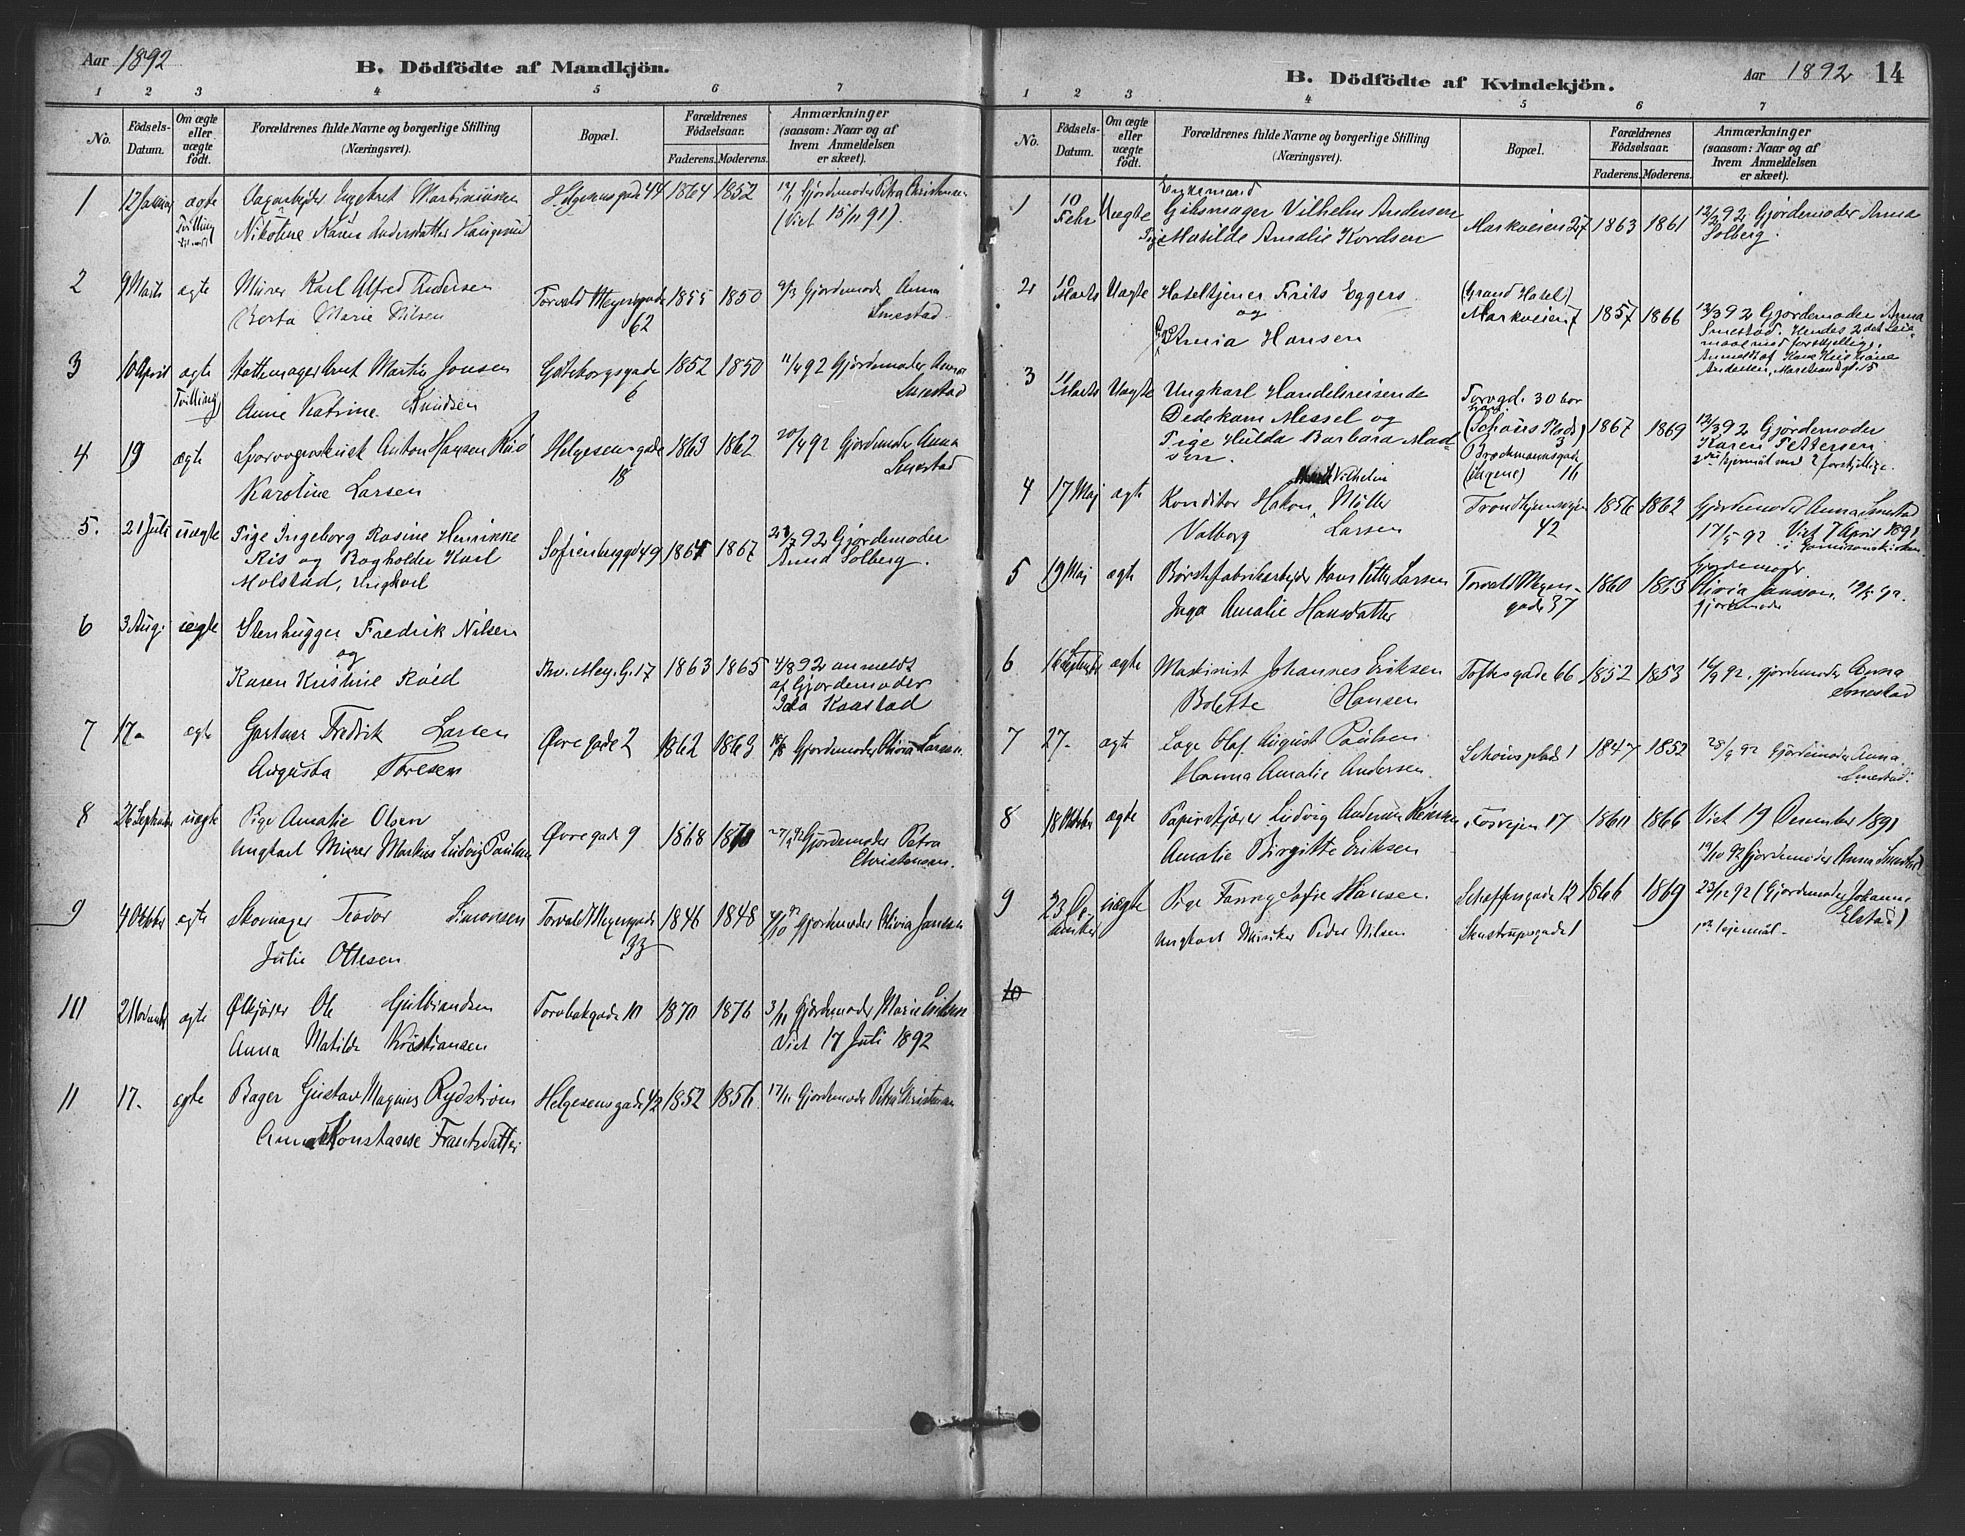 Aar 1892
B. Dödfödte af Mandkjön.
1 2 3 4 5 6 7
No.
Födsels-Datum.
Om ægte eller uægte födt.
Forældrenes fulde Navne og borgerlige Stilling (Næringsvei).
Bopæl.
Forældrenes Födselsaar.
Faderens. Moderens.
Anmærkninger (saasom: Naar og af hvem Anmeldelsen er skeet).
1 12 Januar ægte Tvilling
Martinius
Nikoline Karen Andersdatter Haugerud
Helgesensgade 44 1864 1852
12/1 Gjordemoder Petra Christensen
(Viet 15/11 91).
2 9 Marts ægte
Murer Karl Alfred Andersen
Berta Marie Nilsen
Torvald Meyersgade 62
1855 1850
9/3 Gjordemoder Anna Smestad.
3 10 April ægte (Tvilling)
Hattemager Martin Jonsen
Anne Katrine Knudsen
Göteborgsgade 6
1852 1850
11/4 92 Gjordemoder Anna Smestad
4 19 ægte
Sporvognskusk Anton Hansen Röd
Karoline Larsen
Helgesensgade 18
1863 1862
20/4 92 Gjordemoder Anna Smestad
5. 21 Juli uægte
Pige Ingeborg Rasine Henrikke
Ris og Bogholder Karl
Molstad, Ungkarl
Sofienberggd 49 1865 1867
23/7 92 Gjordemoder
Anna Solberg.
6 3 Aug. uægte
Stenhugger Fredrik Nilsen
og
Karen Kristine Roed
Thv. Mey. G. 17 1863 1865
4/8 92 anmeldt
af Gjordemoder
Ida Kaastad
7 17 ægte
Gartner Fredrik Larsen
Augusta Toresen
Øvregade 2 1862 1863
18/8 Gjordemoder Olivia
8 26 September uægte
Pige Amalie Olsen
Ungkarl Murer Markus Ludvig Paulsen
Øvregade 9 1868 1870
27/9 92 Gjordemoder Petra
Christensen.
9 4 Oktober ægte
Skomager Teodor Simonsen
Julie Ottesen
Torvald Meyersgade 33
1846 1848
4/10 92 Gjordemoder Olivia Jansson
10 2 November ægte
Ølkjører Ole Gulbrandsen
Anna Matilde Kristiansen
Torvbakgade 10 1870 1876
3/11 Gjordemoder Marie Eriksen
Viet 17 Juli 1892
11 17. ægte
Bager Gustav Magnus Rydström
Anna Konstanse Frantsdatter
Helgesensgade 42 1852 1856
17/11 Gjordemoder Petra Kristensen
B. Dödfödte af Kvindekjön.
Aar 1892 14
1 2 3 4 5 6 7
No.
Födsels-Datum.
Om ægte eller uægte födt.
Forældrenes fulde Navne og borgerlige Stilling (Næringsvei).
Bopæl.
Forældrenes Födselsaar.
Faderens. Moderens.
Anmærkninger (saasom: Naar og af hvem Anmeldelsen er skeet).
1 10 Febr Uægte
Enkemand
Gibsmager Vilhelm Andersen
Pige Matilde Amalie Kordsen
Markveien 27 1863 1861
12/2 92 Gjordemoder Anna
Solberg.
2 10 Marts Uægte
Hoteltjener Frits Eggers
og
Pige Anna Hansen
(Grand Hotel)
Markveien 7
1857 1866
12/3 92 Gjordemoder Anna
Smestad. Hendes 2det Leiermaal med forskjellige.
3 11 Marts Uægte
Ungkarl Handelsreisende
Dedekam Messel og
Pige Hulda Barbara Madsen.
Torvgd. 30
(Schous Plads) 3
Brochmannsgade 16
1867 1869
12/3 92 Gjordemoder
Karen Pettersen
2det lejermål med 2 forskjellige.
4 17 Maj ægte
Vilhelm
Konditor Hakon Müller
Valborg Larsen
Trondhjemsvejen 42
1856 1862
Gjordemoder Anna Smestad
17/5 92 Viet 7 April 1891
i Garnisonskirken
5 19 Maj ægte
Børstefabrikarbejder Hans Petter Larsen
Inga Amalie Hansdatter
Torvald Meyersgade 37
1860 1863
Gjordemoder
Olivia Jansson, 19/5 92.
Gjordemoder
6 16 September ægte
Maskinist Johannes Eriksen
Bolette Hansen
Toftesgade 66 1852 1853
16/9 92. Gjordemoder Anna
Smestad
7 27. ægte
Loge Olaf August Paulsen
Hanna Amalie Andersen.
Schousplads 1 1847 1852
28/9 92 Gjordemoder Anna
Smestad.
8 18 Oktober ægte
Ludvig Andersen
Amalie Birgitte Eriksen
Fosvejen 17 1860 1866
Viet 19 Desember 1891
19/10 92 Gjordemoder Anna Smestad
9 23 Desember uægte
Pige Fanny Sofie Hansen
Ungkarl Musiker Peder Nilsen
Scheffersgade 12
Skistrupsgade 1
1866 1869
27/12 92 (Gjordemoder Johanne
Elstad)
1ste lejermål.
10